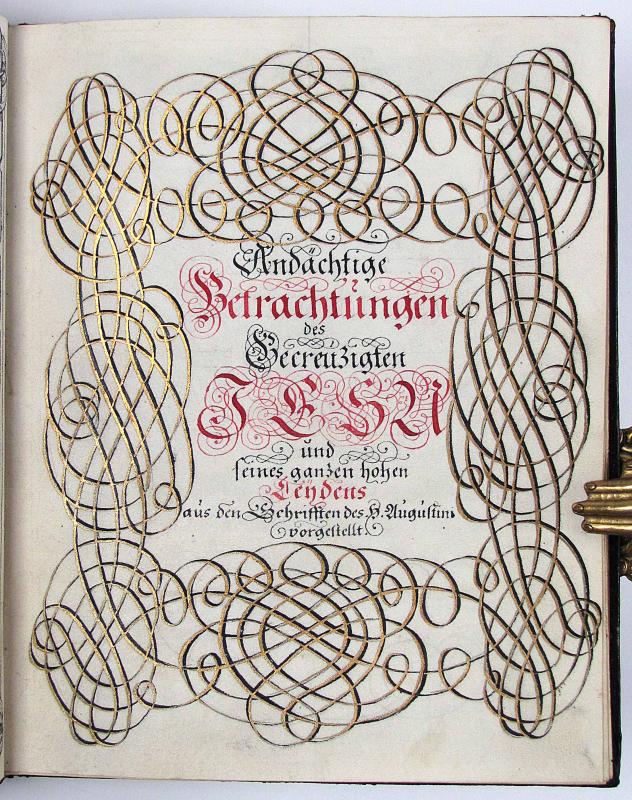 Andächtige
Betrachtüngen
des
Gecreüzigten
JESU
und
seines ganzen hohen
Leÿdens
aüs den Schrifften des H. Aügüstini
vorgestellt.